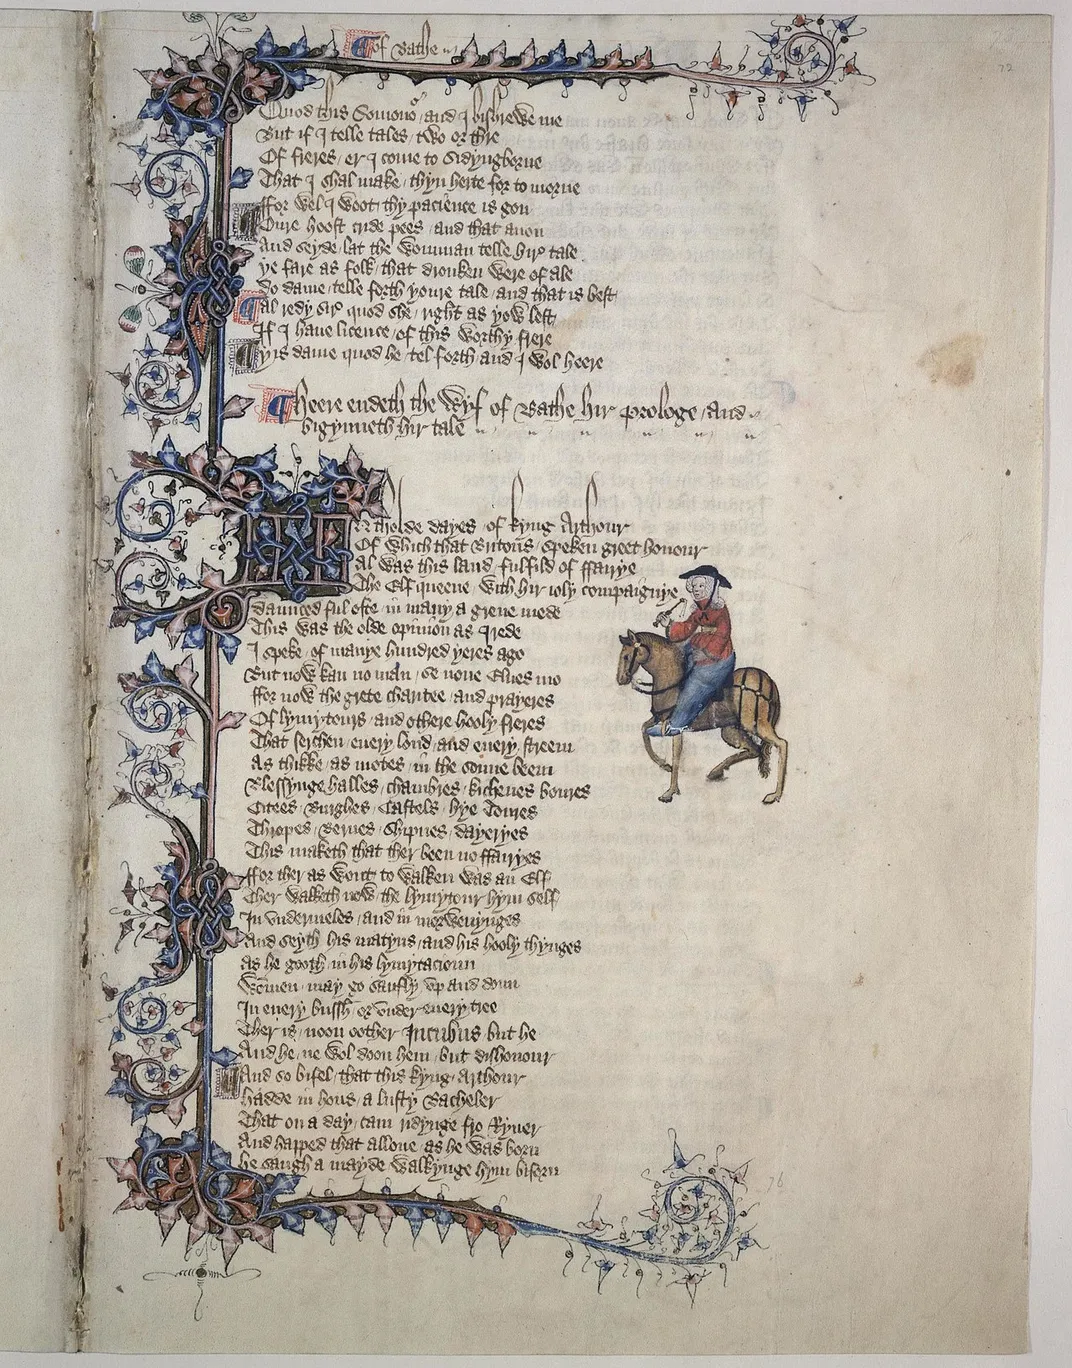 ¶ Of Bathe
Quod this Somonour and I bishrewe me
But if I telle tales two or thre
Of freres er I come to Sidyngborne
That I shal make thyn herte for to morne
ffor wel I woot thy pacience is gon
Oure hoost cride pees and that anon
And seyde lat the womman telle hire tale
ye fare as folk that dronken were of ale
do dame telle forth youre tale and that is best
Al redy sire quod she right as yow lest
If I haue licence of this worthy frere
yis dame quod he tel forth and I wol heere
¶ Heere endeth the Wyf of Bathe hir prologe and
bigynneth hir tale
In tholde dayes of kyng Arthour
Of which that Britons speken greet honour
Al was this land fulfild of ffairye
The Elf queene with hir ioly compaignye
daunced ful ofte in many a grene mede
This was the olde opinion as I rede
I speke of manye hundred yeres ago
But now kan no man se none Elues mo
ffor now the grete charitee and prayeres
Of lymytours and othere hooly freres
That serchen euery lond and euery streem
As thikke as motes in the sonne beem
Blessynge halles chambres kichenes boures
Citees Burghes Castels hye Toures
Thropes Bernes Shipnes dayeryes
This maketh that ther been no ffairyes
ffor ther as wont to walken was an Elf
Ther walketh now the lymytour hym self
In vndermeles and in morwenynges
And seyth his matyns and his hooly thynges
As he gooth in his lymytacioun
Wommen may go saufly vp and doun
In euery bussh or vnder euery tree
Ther is noon oother Incubus but he
And he ne wol doon hem but dishonour
And so bifel that this kyng Arthour
hadde in hous a lusty Bacheler
That on a day cam ridynge fro Ryuer
And happed that allone as he was born
he saugh a mayde walkynge hym biforn